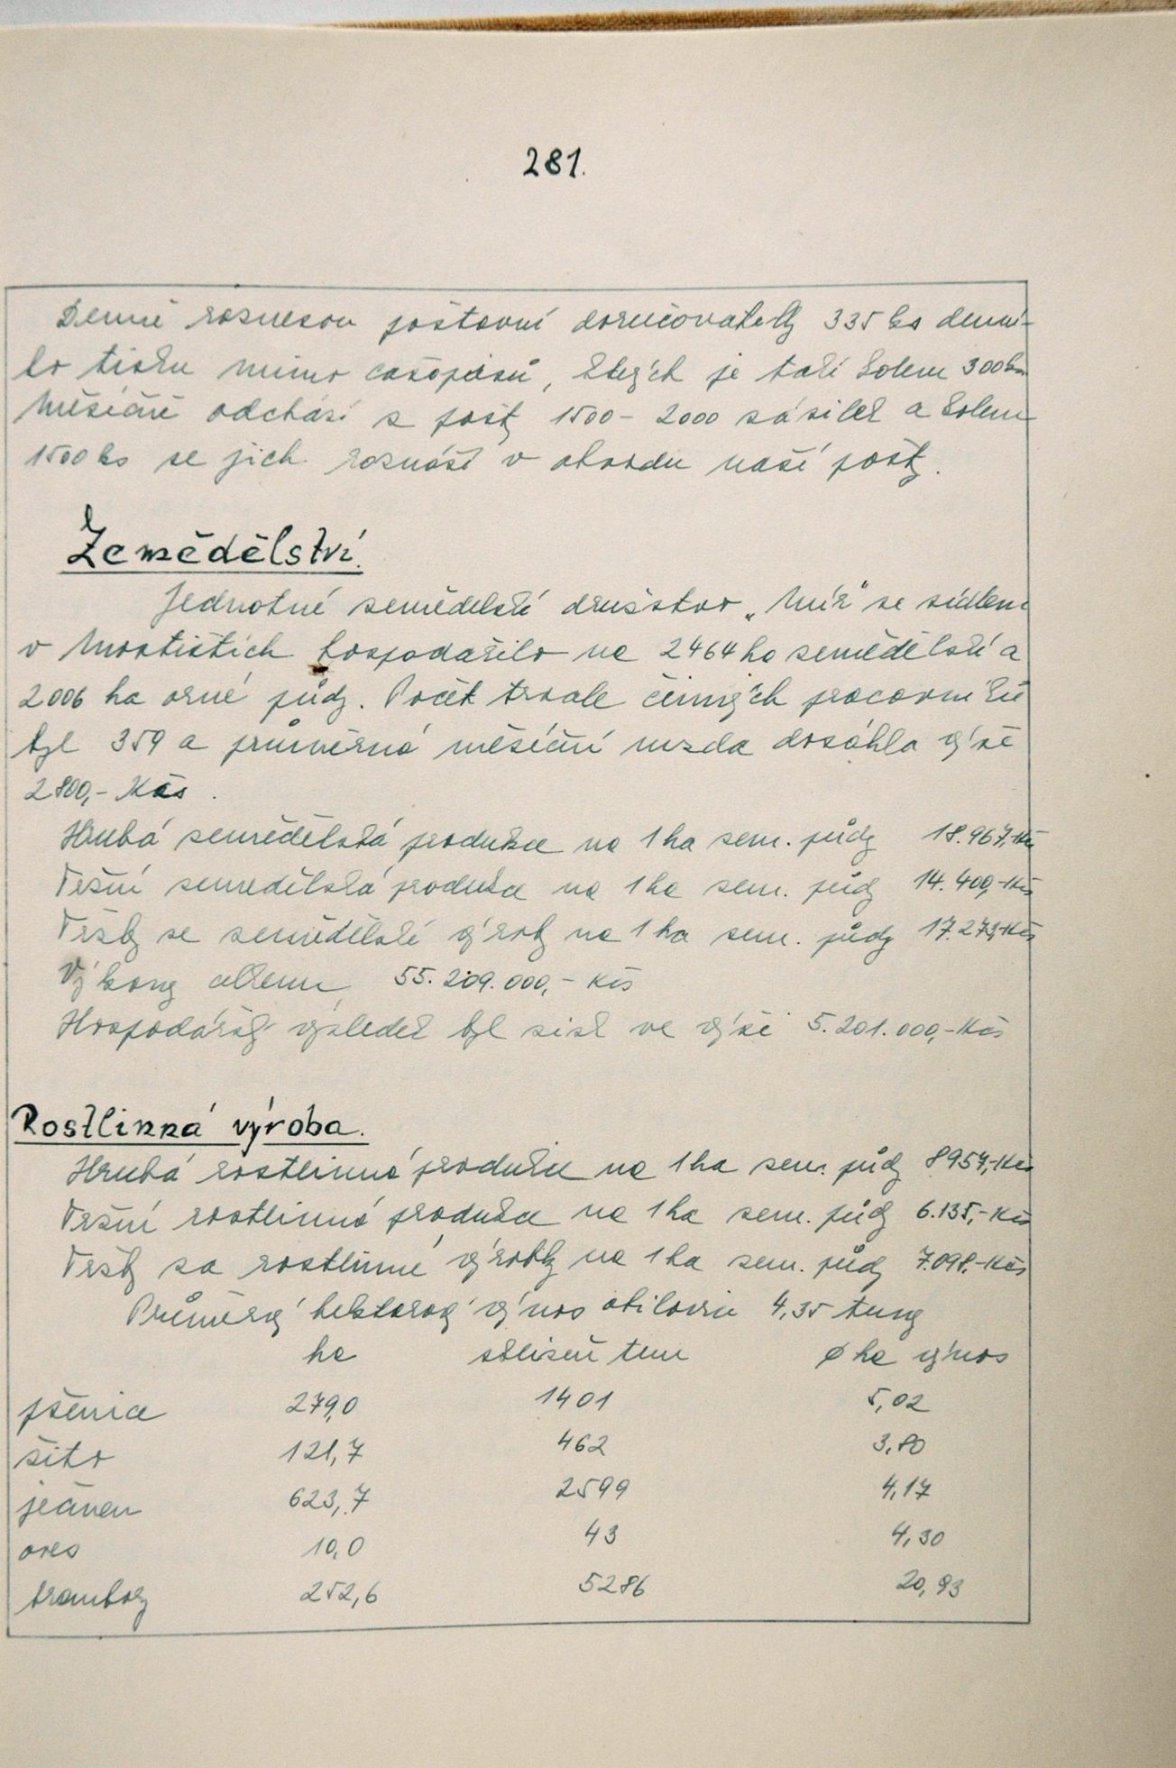 281.
Denně roznesou poštovní doručovatelky 335 ks denní-
ho tisku mimo časopisů, kterých je také kolem 300 ks
Měsíčně odchází z pošty 1500 - 2000 zásilek a kolem
1500 ks se jich roznáší v obvodu naší pošty.
Zemědělství.
Jednotné zemědělské družstvo „Mír" se sídlem
v Mostištích hospodařilo na 2464 ha zemědělské a
2006 ha orné půdy. Počet trvale činných pracovníků
byl 359 a průměrná měsíční mzda dosáhla výše
2800,- Kčs.
Hrubá zemědělská produkce na 1 ha zem. půdy 18.967,-Kčs
Tržní zemědělská produkce na 1 ha zem. půdy 14.400,-Kčs
Tržby ze zemědělské výroby na 1 ha zem. půdy 17.273,-Kčs
Výkony celkem 55.209.000,- Kčs
Hospodářský výsledek byl zisk ve výši 5.201.000,-Kčs
Rostlinná výroba.
Hrubá rostlinná produkce na 1 ha zem. půdy 8954,-Kčs
Tržní rostlinná produkce na 1 ha zem. půdy 6.135,-Kčs
Tržby za rostlinné výrobky na 1 ha zem. půdy 7.098,-Kčs
Průměrný hektarový výnos obilovin 4,35 tuny
ha sklizeň tun ø ha výnos
pšenice 279,0 1401 5,02
žito 121,7 462 3,80
ječmen 623,7 2599 4,17
oves 10,0 43 4,30
brambory 252,6 5286 20,93